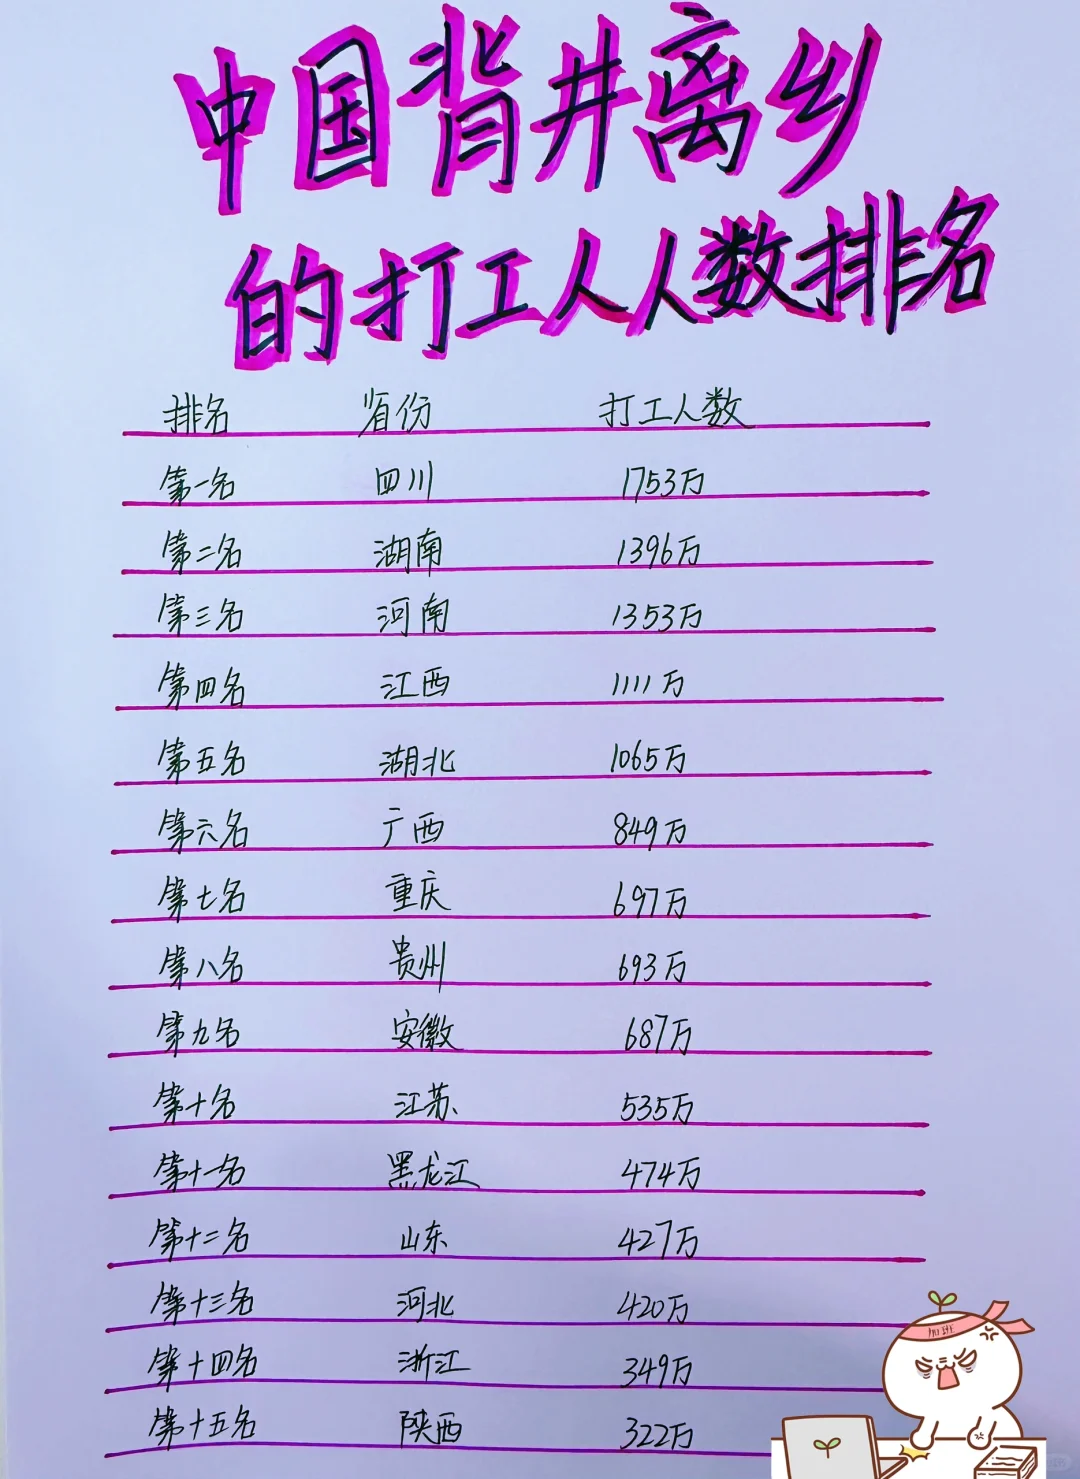 中国背井离乡
的打工人人数排名
排名 省份 打工人数
第一名 四川 1753万
第二名 湖南 1396万
第三名 河南 1353万
第四名 江西 1111万
第五名 湖北 1065万
第六名 广西 849万
第七名 重庆 697万
第八名 贵州 693万
第九名 安徽 687万
第十名 江苏 535万
第十一名 黑龙江 474万
第十二名 山东 427万
第十三名 河北 420万
加班
第十四名 浙江 349万
第十五名 陕西 322万